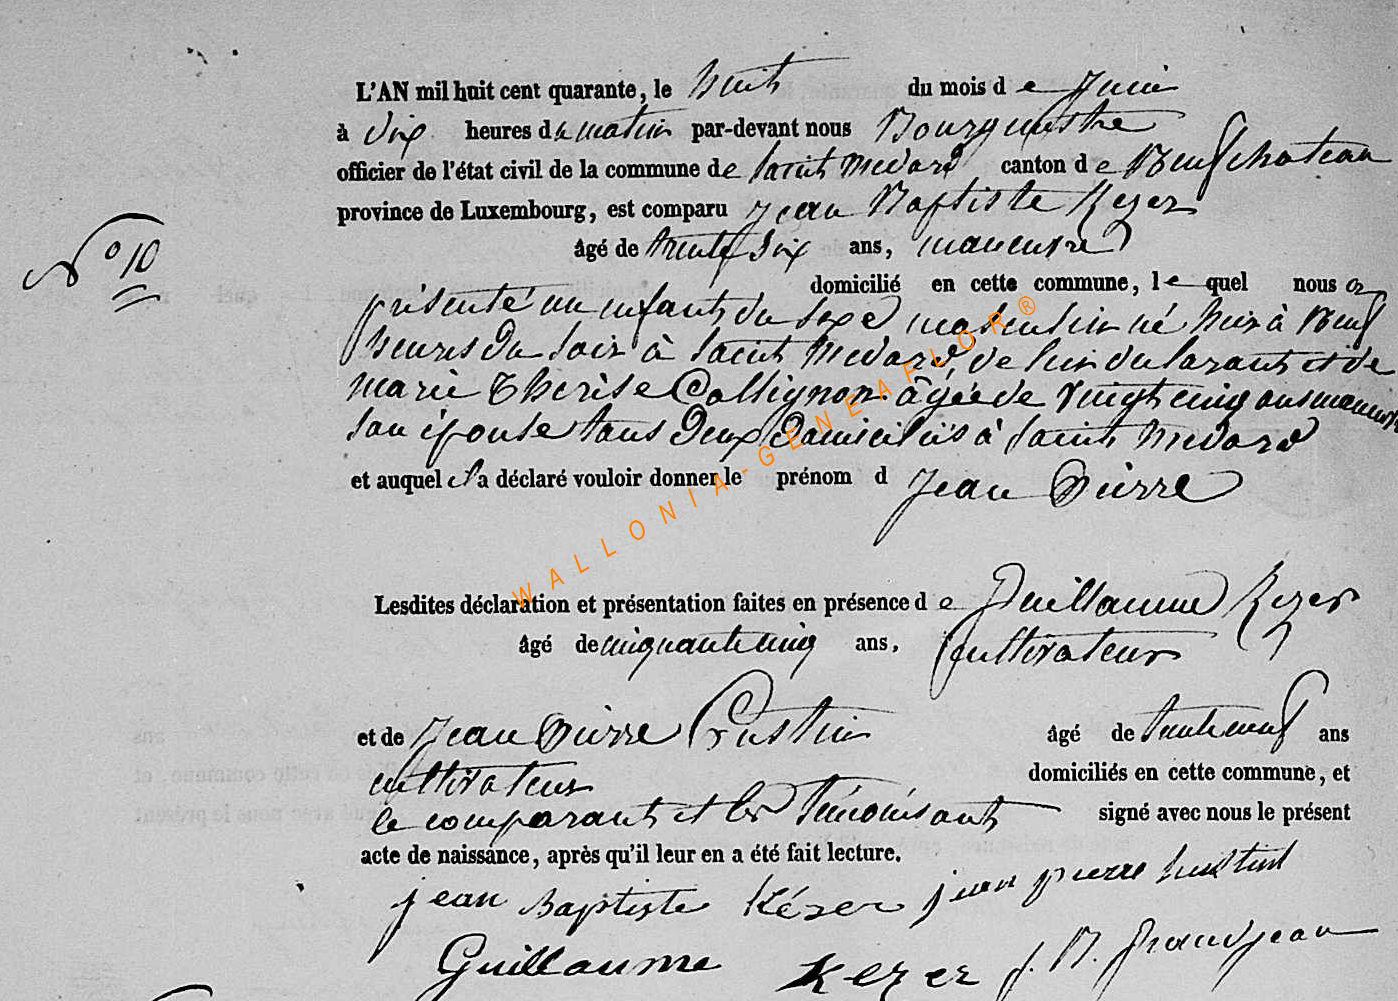 L'AN mil huit cent quarante, le huit du mois de Juin
à dix heures du matin par-devant nous Bourgmestre
officier de l'état civil de la commune de Saint Medard canton de Neufchateau
province de Luxembourg, est comparu Jean Baptiste Kezer
N° 10
âgé de trente six ans, manœuvre
domicilié en cette commune, lequel nous a
présenté un enfant du sexe masculin né hier à Neuf
heures du soir à Saint Medard, de lui déclarant et de
Marie Therése Collignon âgée de vingt cinq ans
son épouse tous deux domiciliés à Saint Medard
et auquel il a déclaré vouloir donner le prénom d Jean Pierre
Lesdites déclaration et présentation faites en présence de Guillaume Kezer
âgé de cinquante cinq ans, Cultivateur
et de Jean Pierre âgé de trente neuf ans
cultivateur domiciliés en cette commune, et
le comparant et les témoins ont signé avec nous le présent
acte de naissance, après qu'il leur en a été fait lecture.
jean Baptiste Kézer jean pierre
Guillaume Kezer J. B. Grandjean
WALLONIA-GENEAFLOR®